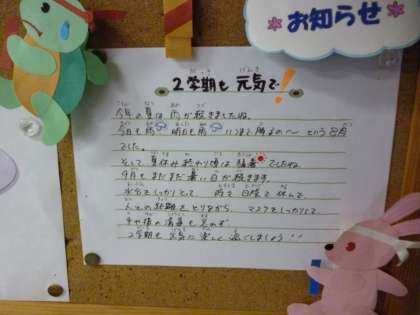 お知らせ
2学期も元気で!
今年の夏は雨が続きましたね。
今日も雨 明日も雨 いつまで降るの〜 という8月
でした。
そして夏休み終わり頃は猛暑 でしたね
9月もまだまだ暑い日が続きます。
水分をしっかりとって 時々日陰で休んで、
人との距離をとりながら、マスクをしっかりして
手や指の消毒も忘れず
2学期も元気に楽しく過ごしましょう!!